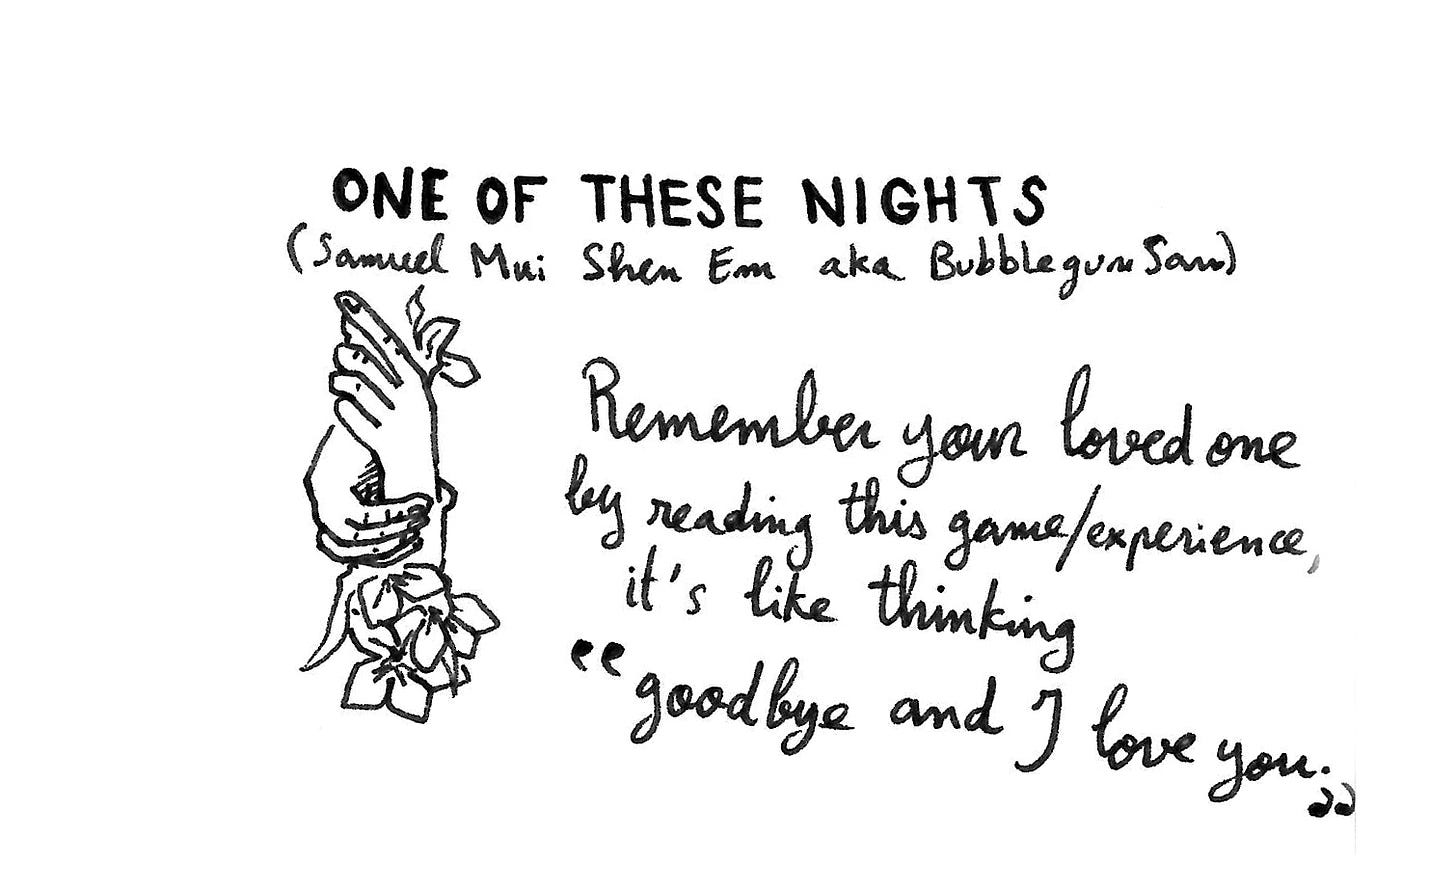 ONE OF THESE NIGHTS
(Samuel Mui Shen Em aka BubblegumSam)
Remember your loved one
by reading this game/experience,
it's like thinking
“goodbye and I love you.”